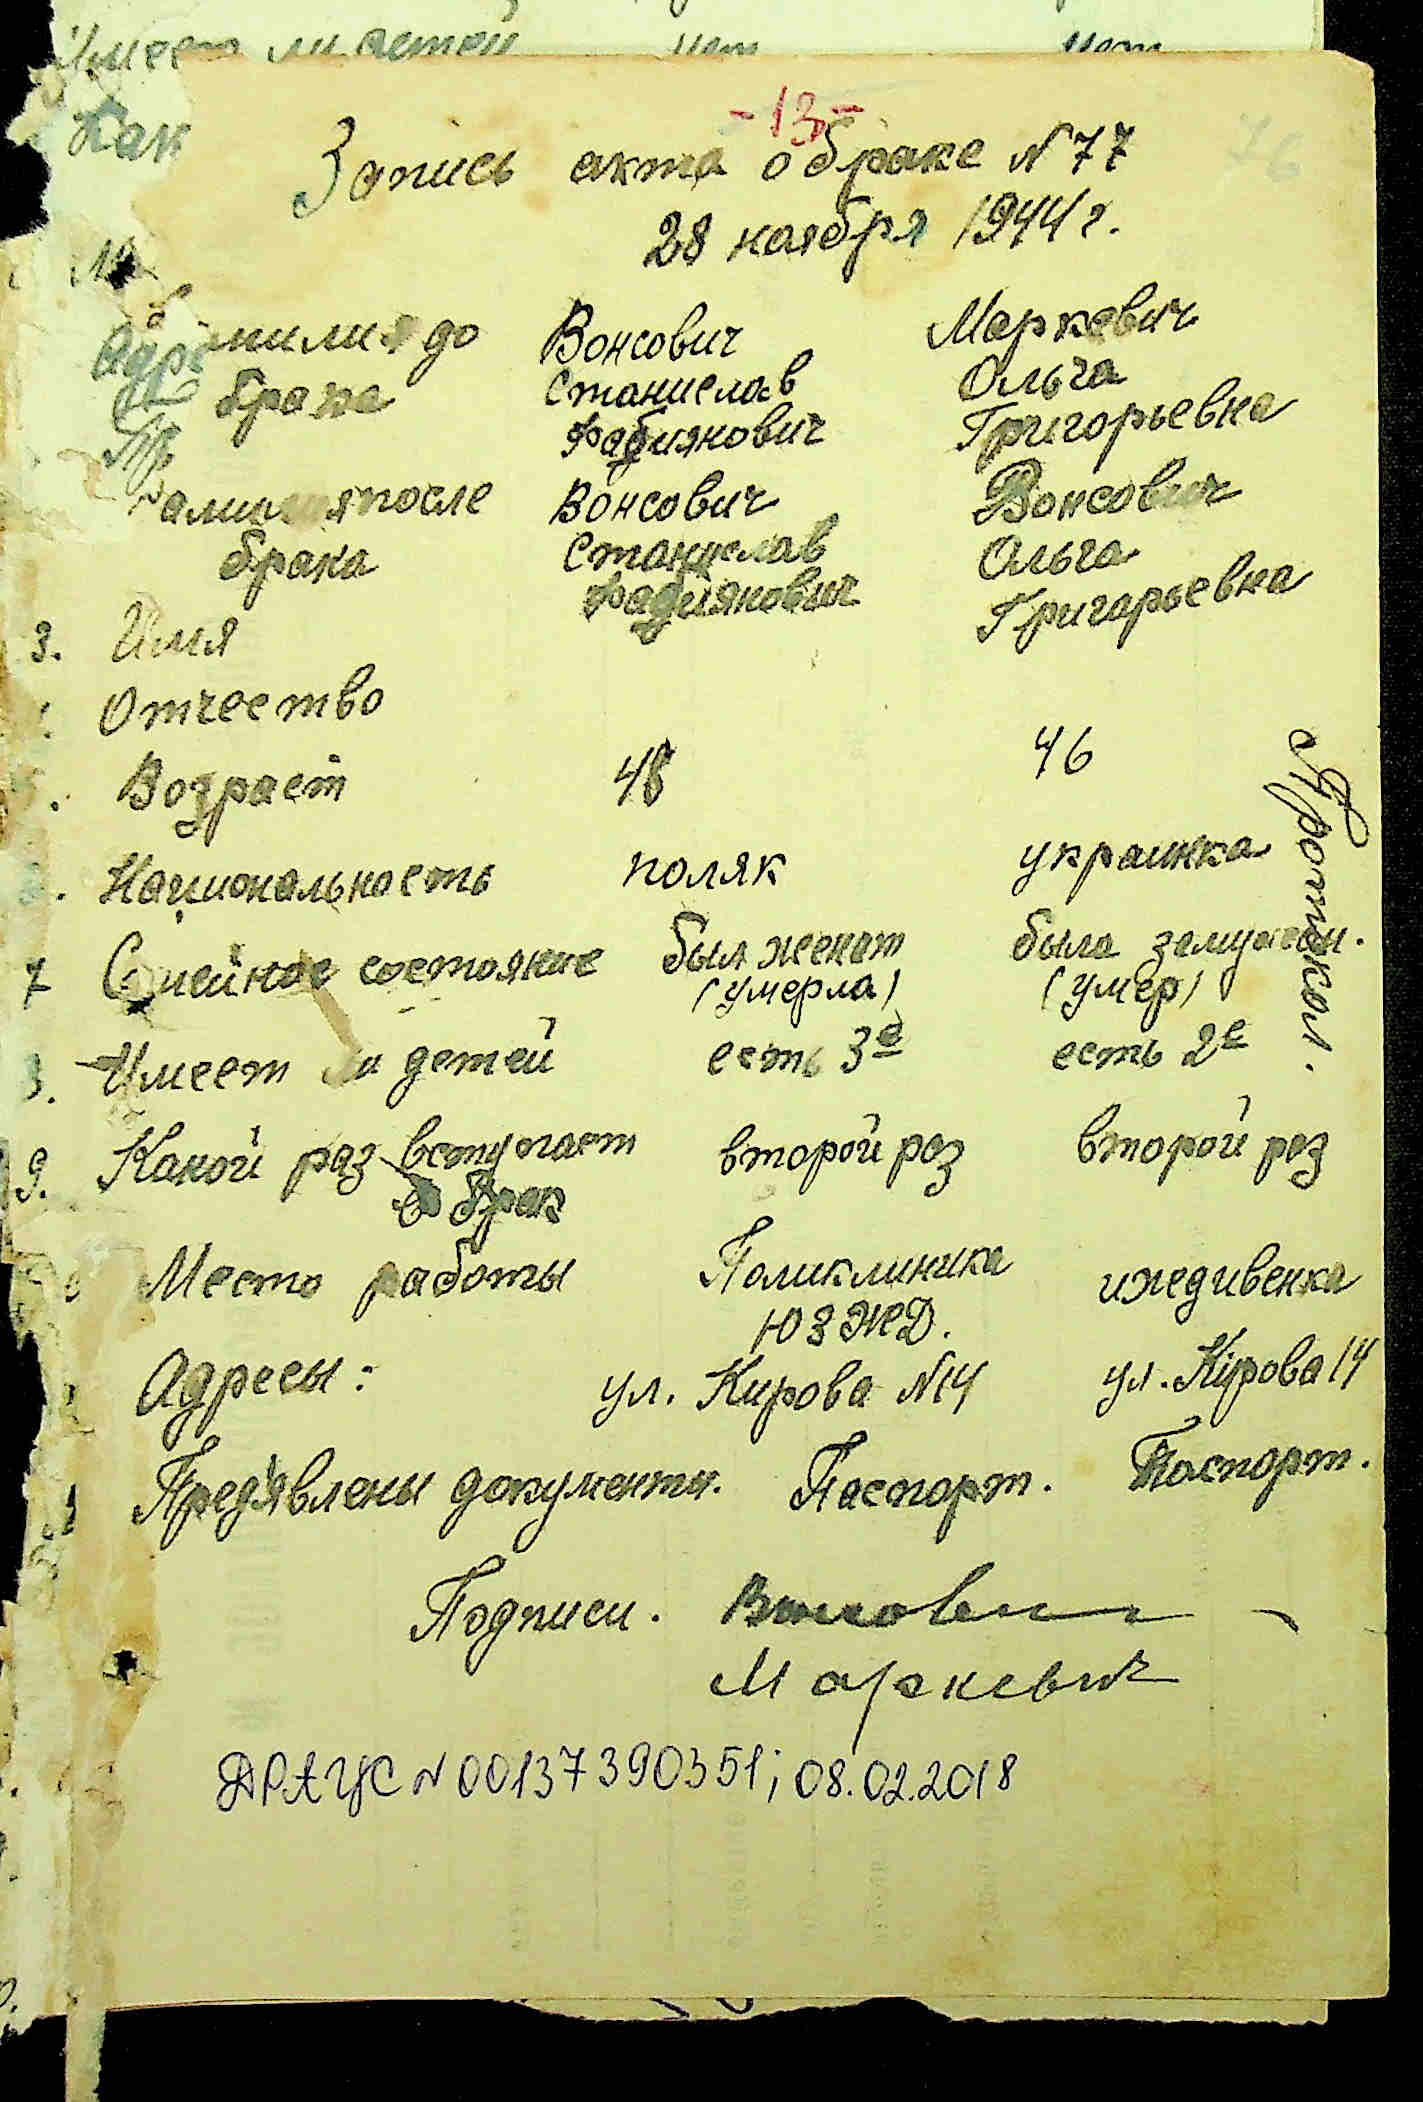 Имеет ли детей нет нет
Как
-13-
76
Запись акта о браке N 77
28 ноября 1944 г.
милия до Вонсович Маркевич
брака Станислав Ольга
Фабиянович Григорьевна
амилия после Вонсович Вонсович
брака Станислав Ольга
Фабиянович Григарьевна
3. Имя
Отчество
Возраст 48 46
Национальность поляк украинка
7 Семейное состояние был женат была замужем.
(умерла) (умер)
8. Имеет ли детей есть 3е есть 2е
9. Какой раз вступает второй раз второй раз
в брак
Место работы Поликлиника иждивенка
ЮЗЖД.
Адресы: ул. Кирова N14 ул. Кірова 14
Пред'явлены документы. Паспорт. Паспорт.
Подписи. Вонсович
Маркевич
ДРАЦС N 00137390351; 08.02.2018